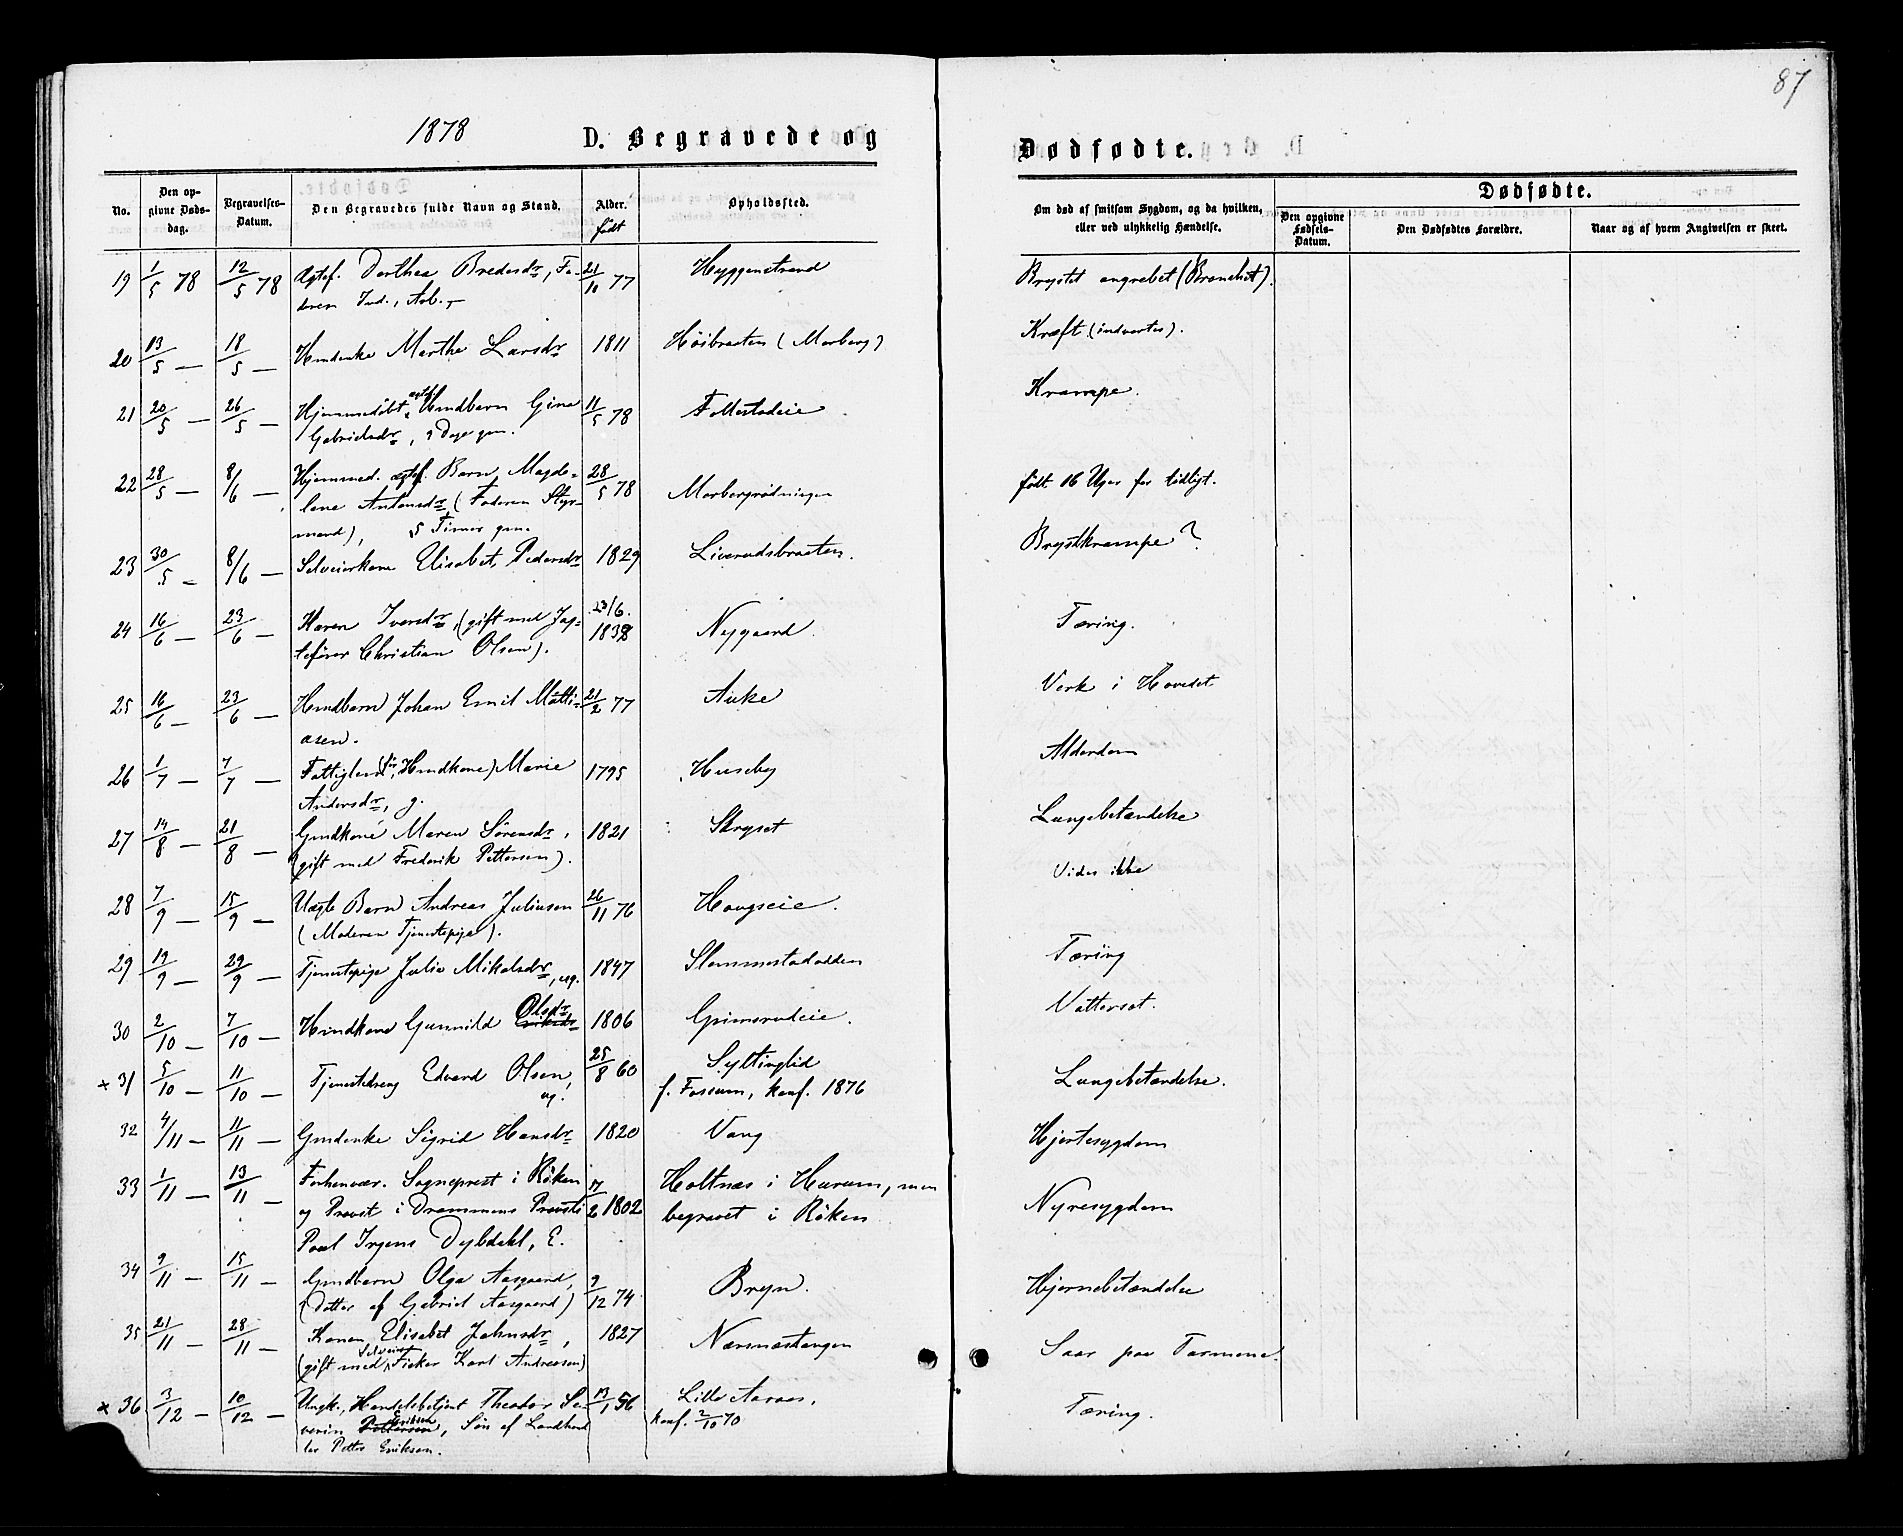 87
1878
D. Begravede og
Dødfødte.
No.
Den op-
givne Døds-
dag.
Begravelses-
Datum.
Den Begravedes fulde Navn og Stand.
Alder.
født
Opholdssted.
Om død af smitsom Sygdom, og da hvilken,
eller ved ulykkelig Hændelse.
Dødfødte.
Den opgivne
Fødsels-
Datum.
Den Dødfødtes Forældre.
Naar og af hvem Angivelsen er skeet.
19 1/5 78 12/5 78 Ægtef. Dorthea Bredesdr, Fa- 21/10 77 Hyggenstrand Brystet angrebet (Bronchit).
deren Ind., Arb.
20 13/5 — 18/5 — Hmdenke Marthe Larsdr 1811 Høibraaten (Morberg) Kræft (indvortes).
21 20/5 — 26/5 — Hjemmedøbt ægtef. Hmdbarn Gina 11/5 78 Follestadeie Krampe.
Gabrielsdr, 9 Dage gm.
22 28/5 — 8/6 — Hjemmed. ægtef. Barn Magda- 28/5 78 Morbergrødningen født 16 Uger for tidligt.
lene Antonsdr (Faderen Styr-
mand), 5 Timer gm.
23 30/5 — 8/6 — Selveierkone Elisabet Pedersdr 1829 Liverudsbraaten. Brystkrampe?
24 16/6 — 23/6 — Karen Iversdr, (gift med Jag- 23/6. 1838 Nygaard. Tæring.
tefører Christian Olsen).
25 16/6 — 23/6 — Hmdbarn Johan Emil Matti- 21/2 77 Auke Verk i Hovedet
asen.
26 1/7 — 7/7 — Fattiglem (før Hmdkone) Marie 1795 Huseby Alderdom
Andersdr, g.
27 14/8 — 21/8 — Gmdkone Maren Sørensdr, 1821 Skryset Lungebetændelse
(gift med Frederik Pettersen).
28 7/9 — 15/9 — Uægte Barn Andreas Juliusen 26/11 76 Hougseie. Vides ikke
(Moderen Tjenestepige).
29 19/9 — 29/9 — Tjenestepige Julie Mikalsdr, ug. 1847 Slemmestadodden Tæring
30 2/10 — 7/10 — Hmdkone Gunnild Eriksdr Olsdr 1806 Grimsrudeie. Vattersot.
x 31 5/10 — 11/10 — Tjenestedreng Edvard Olsen, 25/8 60 Syltinglid Lungebetændelse.
ug. f. Fossum, konf. 1876
32 4/11 — 11/11 — Gmdenke Sigrid Hansdr 1820 Vang Hjertesygdom
33 1/11 — 13/11 — Forhenvær. Sogneprest i Røken 17/2 1802 Holtnæs i Hurum, men Nyresygdom
og Provst i Drammens Provsti begravet i Røken
Poul Irgens Dybdahl, E.
34 9/11 — 15/11 — Gmdbarn Olga Aasgaard, 9/12 74 Bryn. Hjernebetændelse
(Datter af Gabriel Aasgaard)
35 21/11 — 28/11 — Konen Elisabet Johnsdr, 1827 Nærsnæstangen Saar paa Tarmene.
(gift med Selveier, Fisker Karl Andreasen)
x 36 3/12 — 10/12 — Ungk., Handelsbetjent Theodor Se- 13/1 56 Lille Aaraas, Tæring.
verin Pettersen Eriksen, Søn af Landhand konf. 2/10 70
ler Petter Eriksen.